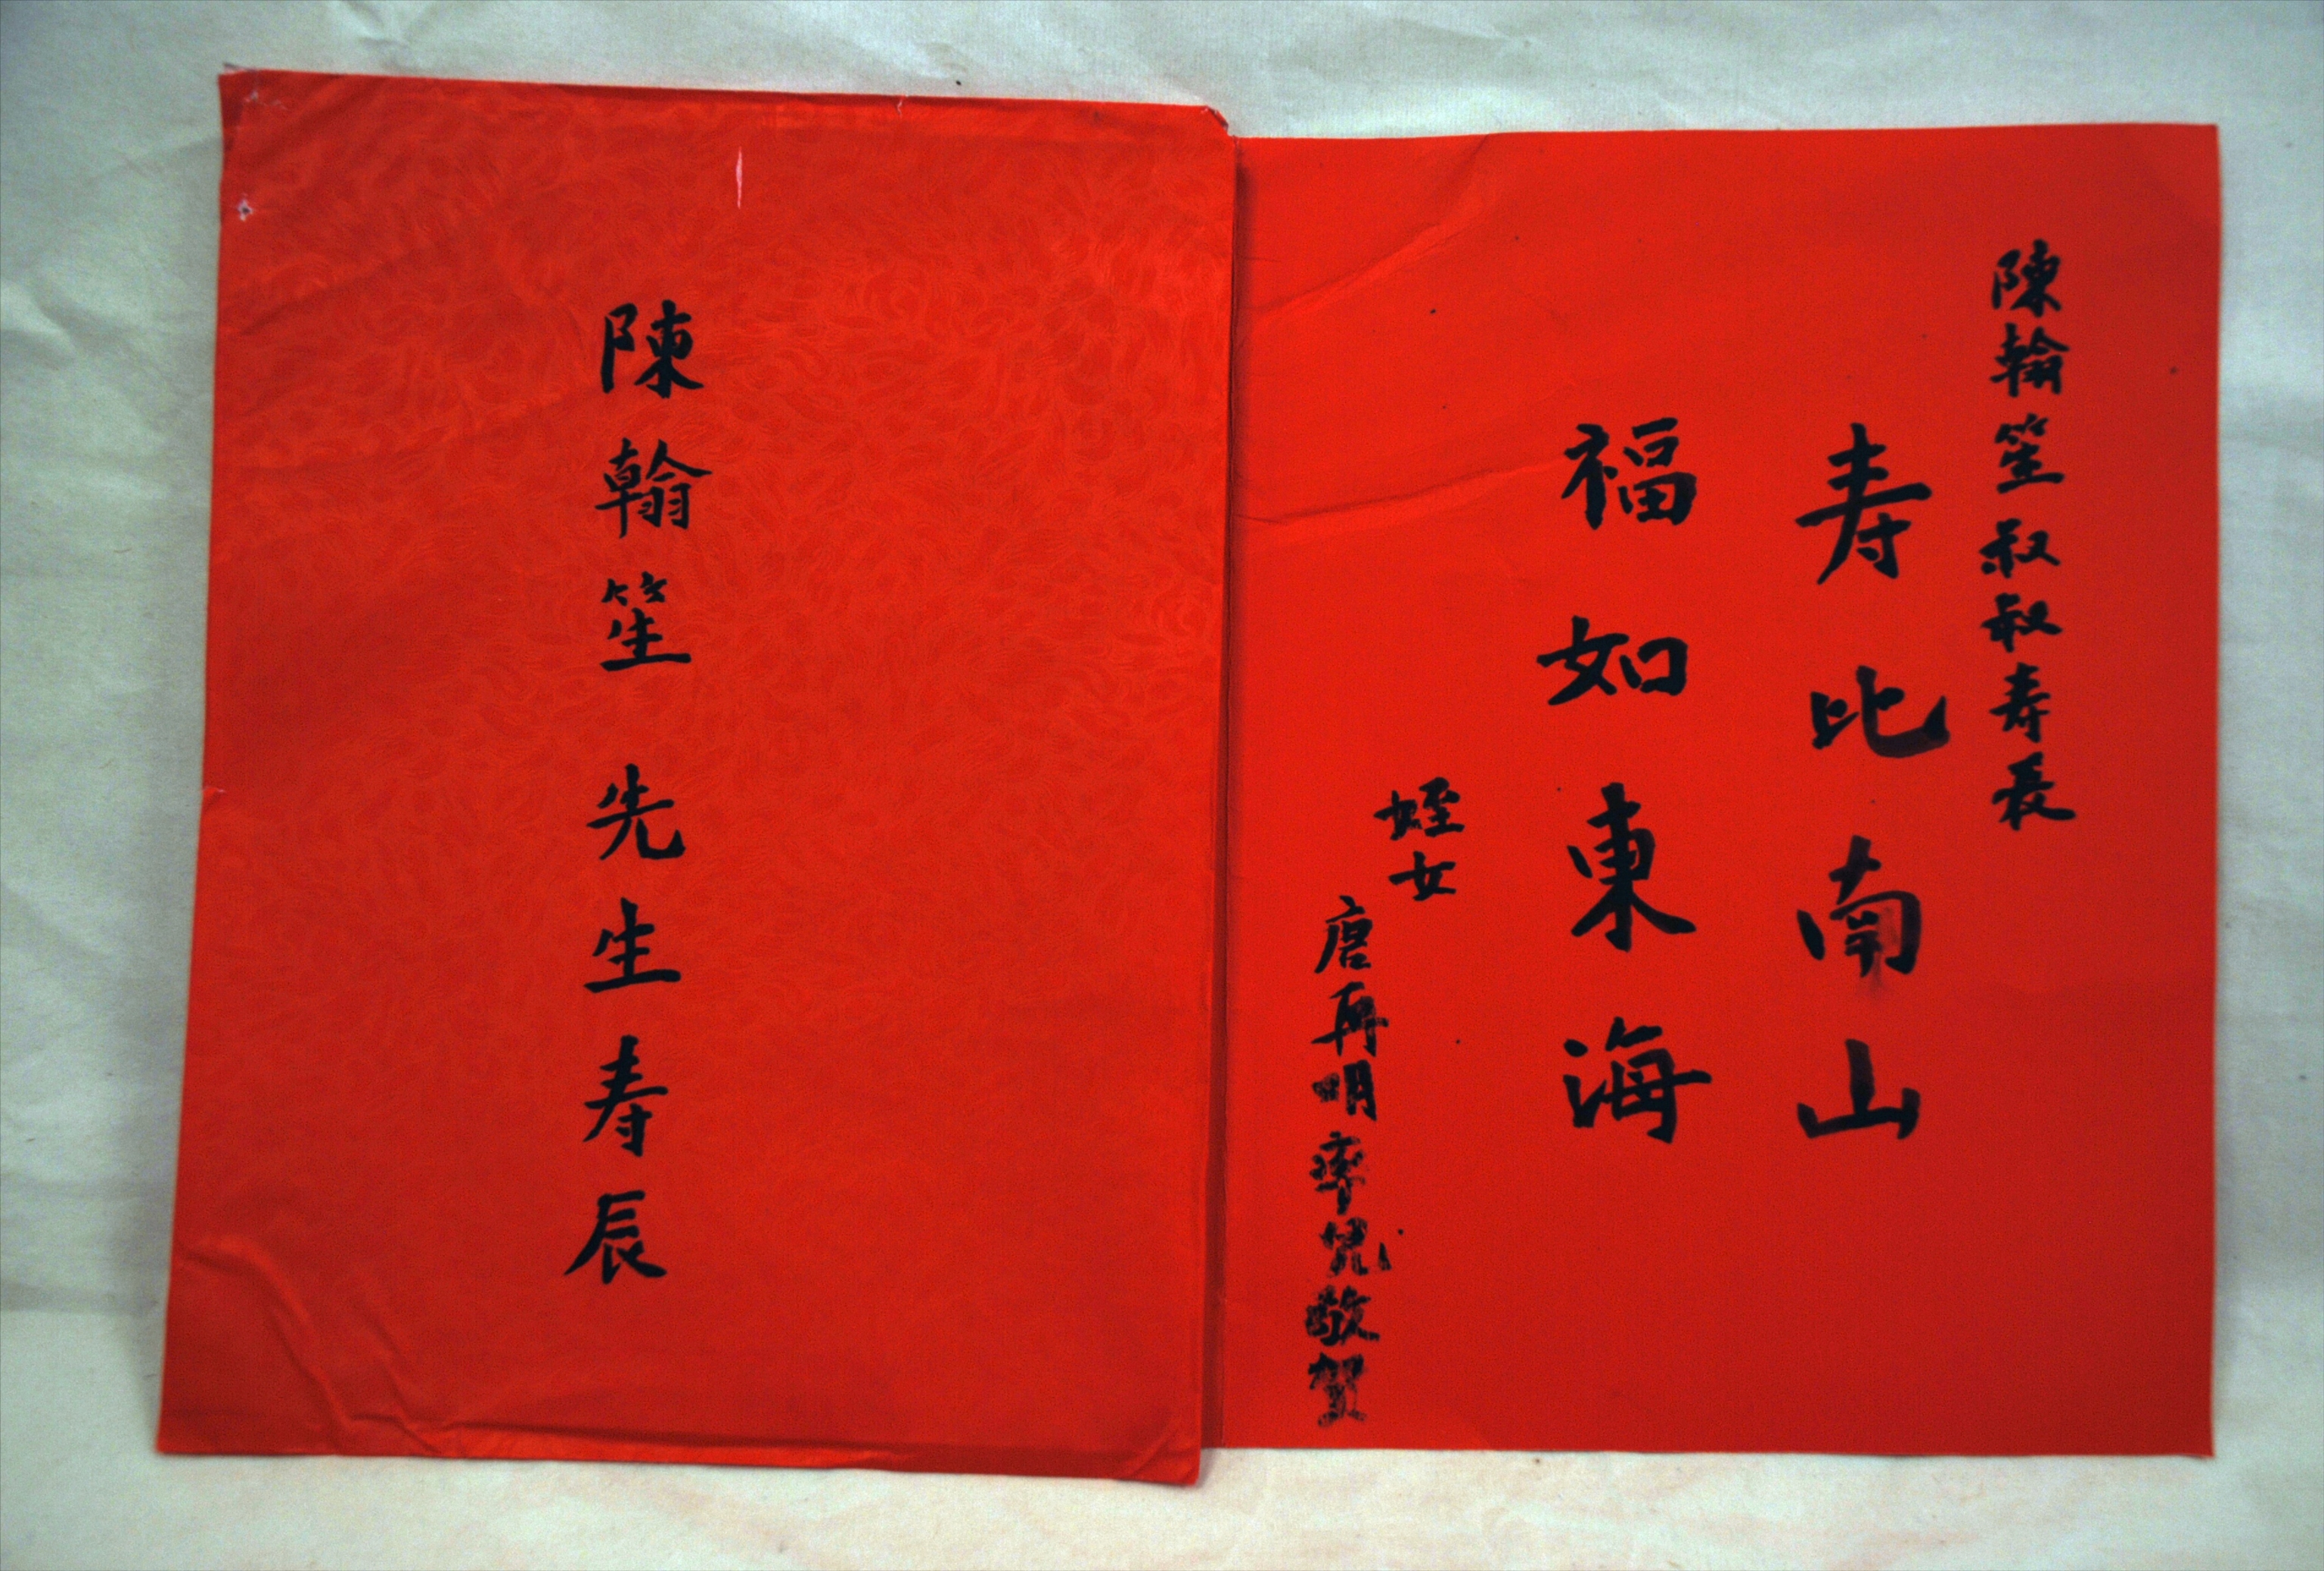 陳翰笙先生寿辰
陳翰笙叔叔寿長
寿比南山
福如東海
姪女
唐再明率児敬賀